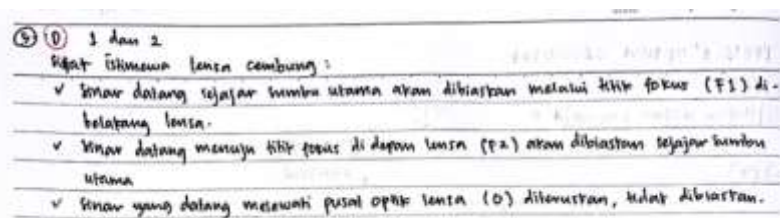 5 D 1 dan 2
Sifat istimewa lensa cembung :
✓ Sinar datang sejajar sumbu utama akan dibiaskan melalui titik fokus (F1) di-
belakang lensa.
✓ Sinar datang menuju titik fokus di depan lensa (F2) akan dibiaskan sejajar sumbu
utama
✓ Sinar yang datang melewati pusat optik lensa (O) diteruskan, tidak dibiaskan.